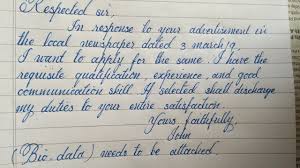 Respected sir,
In response to your advertisement in
the local newspaper dated 3 march/19,
I want to apply for the same. I have the
requisite qualification, experience, and good
communication skill. If selected shall discharge
my duties to your entire satisfaction.
Yours faithfully,
John
(Bio.data) needs to be attached.